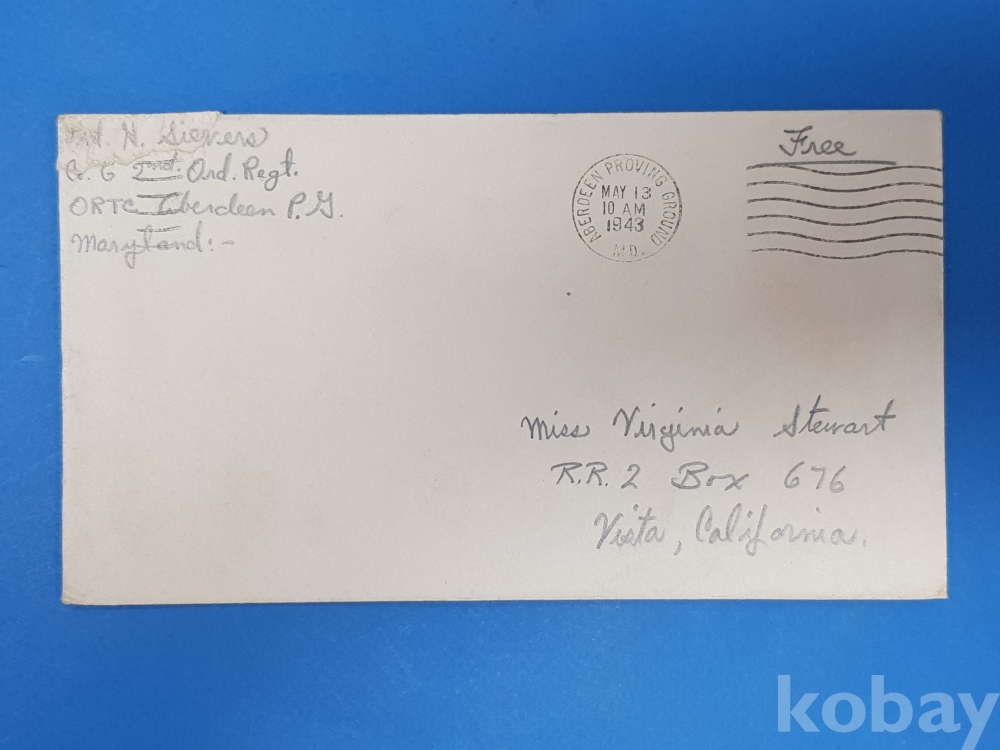 Pvt. H. Sievers
Co. G 2nd. Ord. Regt.
ORTC Aberdeen P.G.
Maryland:-
Free
ABERDEEN PROVING GROUND
MAY 13
10 AM
1943
MD.
Miss Virginia Stewart
R.R. 2 Box 676
Vista, California.
kobay